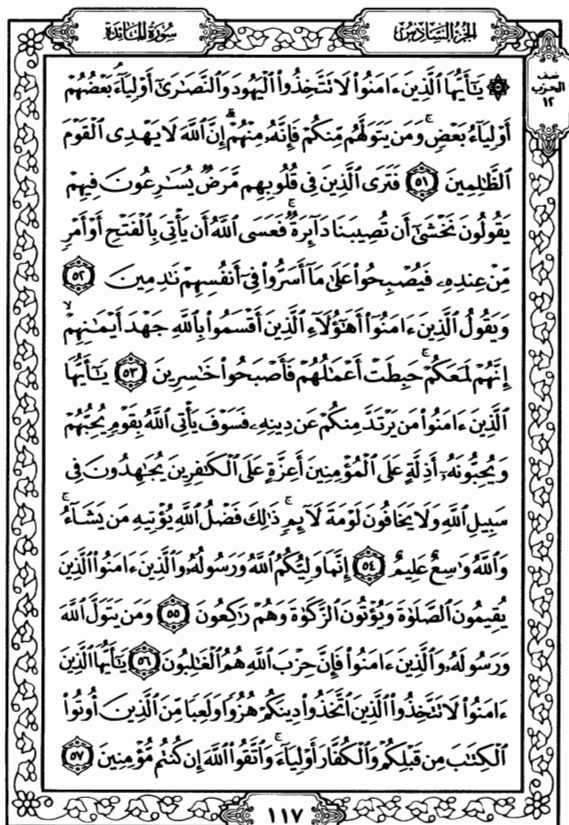 سُورَةُ المَائِدَةِ
الجُزْءُ السَّادِسُ
نصف
الحزب
١٢
۞ يَٰٓأَيُّهَا ٱلَّذِينَ ءَامَنُواْ لَا تَتَّخِذُواْ ٱلْيَهُودَ وَٱلنَّصَٰرَىٰٓ أَوْلِيَآءَۘ بَعْضُهُمْ
أَوْلِيَآءُ بَعْضٍۚ وَمَن يَتَوَلَّهُم مِّنكُمْ فَإِنَّهُۥ مِنْهُمْۗ إِنَّ ٱللَّهَ لَا يَهْدِى ٱلْقَوْمَ
ٱلظَّٰلِمِينَ ٥١ فَتَرَى ٱلَّذِينَ فِى قُلُوبِهِم مَّرَضٌ يُسَٰرِعُونَ فِيهِمْ
يَقُولُونَ نَخْشَىٰٓ أَن تُصِيبَنَا دَآئِرَةٌۚ فَعَسَى ٱللَّهُ أَن يَأْتِىَ بِٱلْفَتْحِ أَوْ أَمْرٍ
مِّنْ عِندِهِۦ فَيُصْبِحُواْ عَلَىٰ مَآ أَسَرُّواْ فِىٓ أَنفُسِهِمْ نَٰدِمِينَ ٥٢
وَيَقُولُ ٱلَّذِينَ ءَامَنُوٓاْ أَهَٰٓؤُلَآءِ ٱلَّذِينَ أَقْسَمُواْ بِٱللَّهِ جَهْدَ أَيْمَٰنِهِمْۙ
إِنَّهُمْ لَمَعَكُمْۚ حَبِطَتْ أَعْمَٰلُهُمْ فَأَصْبَحُواْ خَٰسِرِينَ ٥٣ يَٰٓأَيُّهَا
ٱلَّذِينَ ءَامَنُواْ مَن يَرْتَدَّ مِنكُمْ عَن دِينِهِۦ فَسَوْفَ يَأْتِى ٱللَّهُ بِقَوْمٍ يُحِبُّهُمْ
وَيُحِبُّونَهُۥٓ أَذِلَّةٍ عَلَى ٱلْمُؤْمِنِينَ أَعِزَّةٍ عَلَى ٱلْكَٰفِرِينَ يُجَٰهِدُونَ فِى
سَبِيلِ ٱللَّهِ وَلَا يَخَافُونَ لَوْمَةَ لَآئِمٍۚ ذَٰلِكَ فَضْلُ ٱللَّهِ يُؤْتِيهِ مَن يَشَآءُۚ
وَٱللَّهُ وَٰسِعٌ عَلِيمٌ ٥٤ إِنَّمَا وَلِيُّكُمُ ٱللَّهُ وَرَسُولُهُۥ وَٱلَّذِينَ ءَامَنُواْ ٱلَّذِينَ
يُقِيمُونَ ٱلصَّلَوٰةَ وَيُؤْتُونَ ٱلزَّكَوٰةَ وَهُمْ رَٰكِعُونَ ٥٥ وَمَن يَتَوَلَّ ٱللَّهَ
وَرَسُولَهُۥ وَٱلَّذِينَ ءَامَنُواْ فَإِنَّ حِزْبَ ٱللَّهِ هُمُ ٱلْغَٰلِبُونَ ٥٦ يَٰٓأَيُّهَا ٱلَّذِينَ
ءَامَنُواْ لَا تَتَّخِذُواْ ٱلَّذِينَ ٱتَّخَذُواْ دِينَكُمْ هُزُوًا وَلَعِبًا مِّنَ ٱلَّذِينَ أُوتُواْ
ٱلْكِتَٰبَ مِن قَبْلِكُمْ وَٱلْكُفَّارَ أَوْلِيَآءَۚ وَٱتَّقُواْ ٱللَّهَ إِن كُنتُم مُّؤْمِنِينَ ٥٧
١١٧